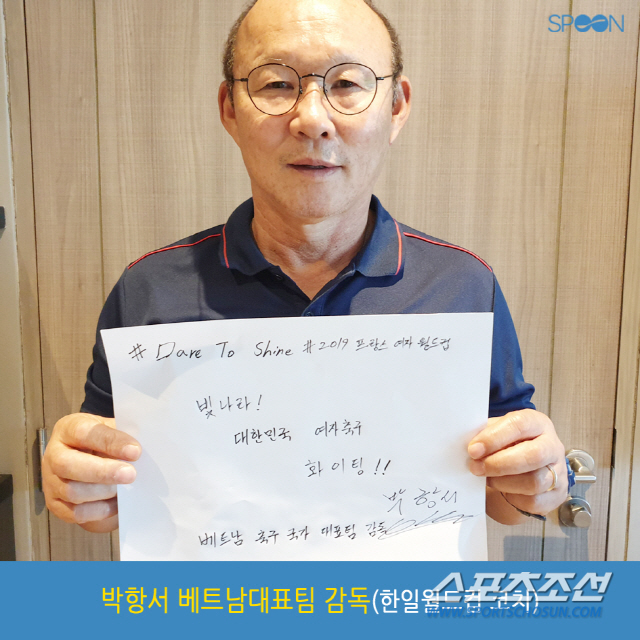 SPOON
# Dare To Shine #2019 프랑스 여자 월드컵
빛나라!
대한민국 여자축구
화이팅!!
박항서
베트남 축구 국가 대표팀 감독
박항서 베트남대표팀 감독(한일월드컵 코치)
스포츠조선
WWW.SPORTSCHOSUN.COM